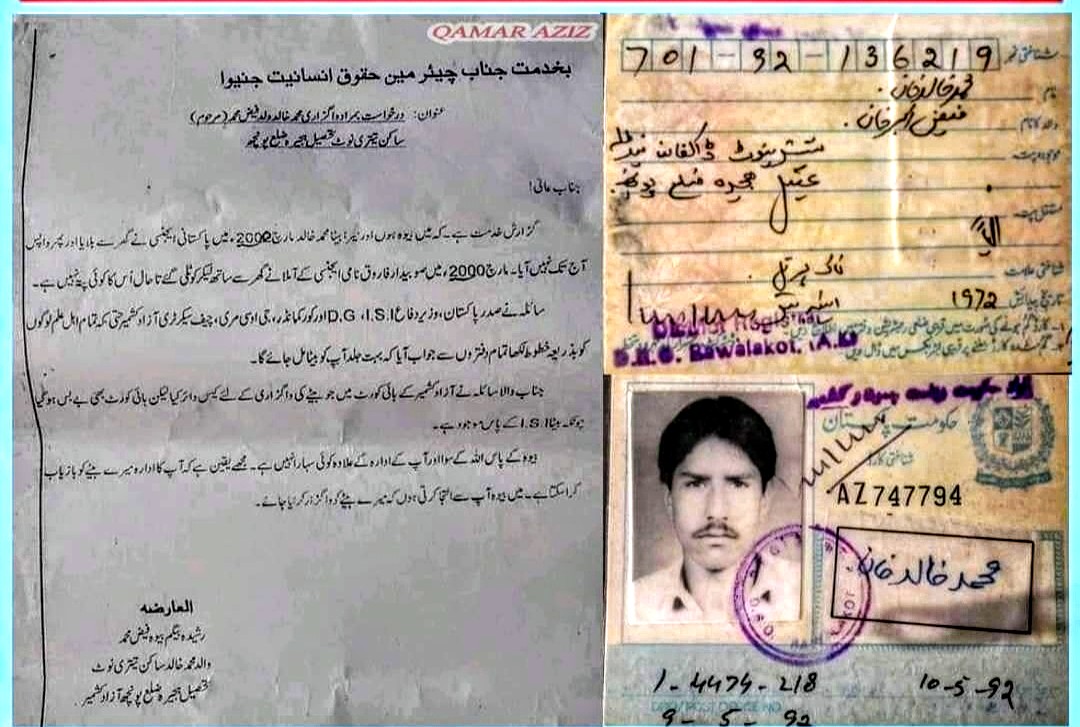 QAMAR AZIZ
بخدمت جناب چیئرمین حقوق انسانیت جنیوا
عنوان: درخواست بمراد واگزاری محمد خالد ولد فیض محمد (مرحوم)
ساکن تیتری نوٹ تحصیل ہجیرہ ضلع پونچھ
جناب عالی!
گزارش خدمت ہے۔ کہ میں بیوہ ہوں اور میرا بیٹا محمد خالد مارچ 2002ء میں پاکستانی ایجنسی نے گھر سے بلایا اور پھر واپس
آج تک نہیں آیا۔ مارچ 2000ء میں صوبیدار فاروق نامی ایجنسی کے آملا نے گھر سے ساتھ لیکر کوٹلی گئے تا حال اُس کا کوئی پتہ نہیں ہے۔
سائلہ نے صدر پاکستان، وزیر دفاع D.G ،I.S.I اور کور کمانڈر، جی او سی مری، چیف سیکرٹری آزاد کشمیر حتی کہ تمام اہل علم لوگوں
کو بذریعہ خطوط لکھا تمام دفتروں سے جواب آیا کہ بہت جلد آپ کو بیٹا مل جائے گا۔
جناب والا سائلہ نے آزاد کشمیر کے ہائی کورٹ میں جو بیٹے کی واگزاری کے لئے کیس دائر کیا لیکن ہائی کورٹ بھی بے بس ہو گیا
چونکہ بیٹا I.S.I کے پاس موجود ہے۔
بیوہ کے پاس اللہ کے سوا اور آپ کے ادارہ کے علاوہ کوئی سہارا نہیں ہے۔ مجھے یقین ہے کہ آپ کا ادارہ میرے بیٹے کو بازیاب
کرا سکتا ہے۔ میں بیوہ آپ سے التجا کرتی ہوں کہ میرے بیٹے کو واگزار کرایا جائے۔
العارضہ
رشیدہ بیگم بیوہ فیض محمد
والدہ محمد خالد ساکن تیتری نوٹ
تحصیل ہجیرہ ضلع پونچھ آزاد کشمیر
شناختی نمبر 701-92-136219
نام محمد خالد خان
والد کا نام فیض اکبر خان
موجودہ پتہ ڈاکخانہ
ہجیرہ ضلع پونچھ
مستقل پتہ ایضاً
شناختی علامت ناک پر تل
تاریخ پیدائش 1972
D.R.O. Rawalakot. (A.K)
حکومت پاکستان
شناختی کارڈ
AZ747794
محمد خالد خان
1-4474-218
10-5-92
9-5-92